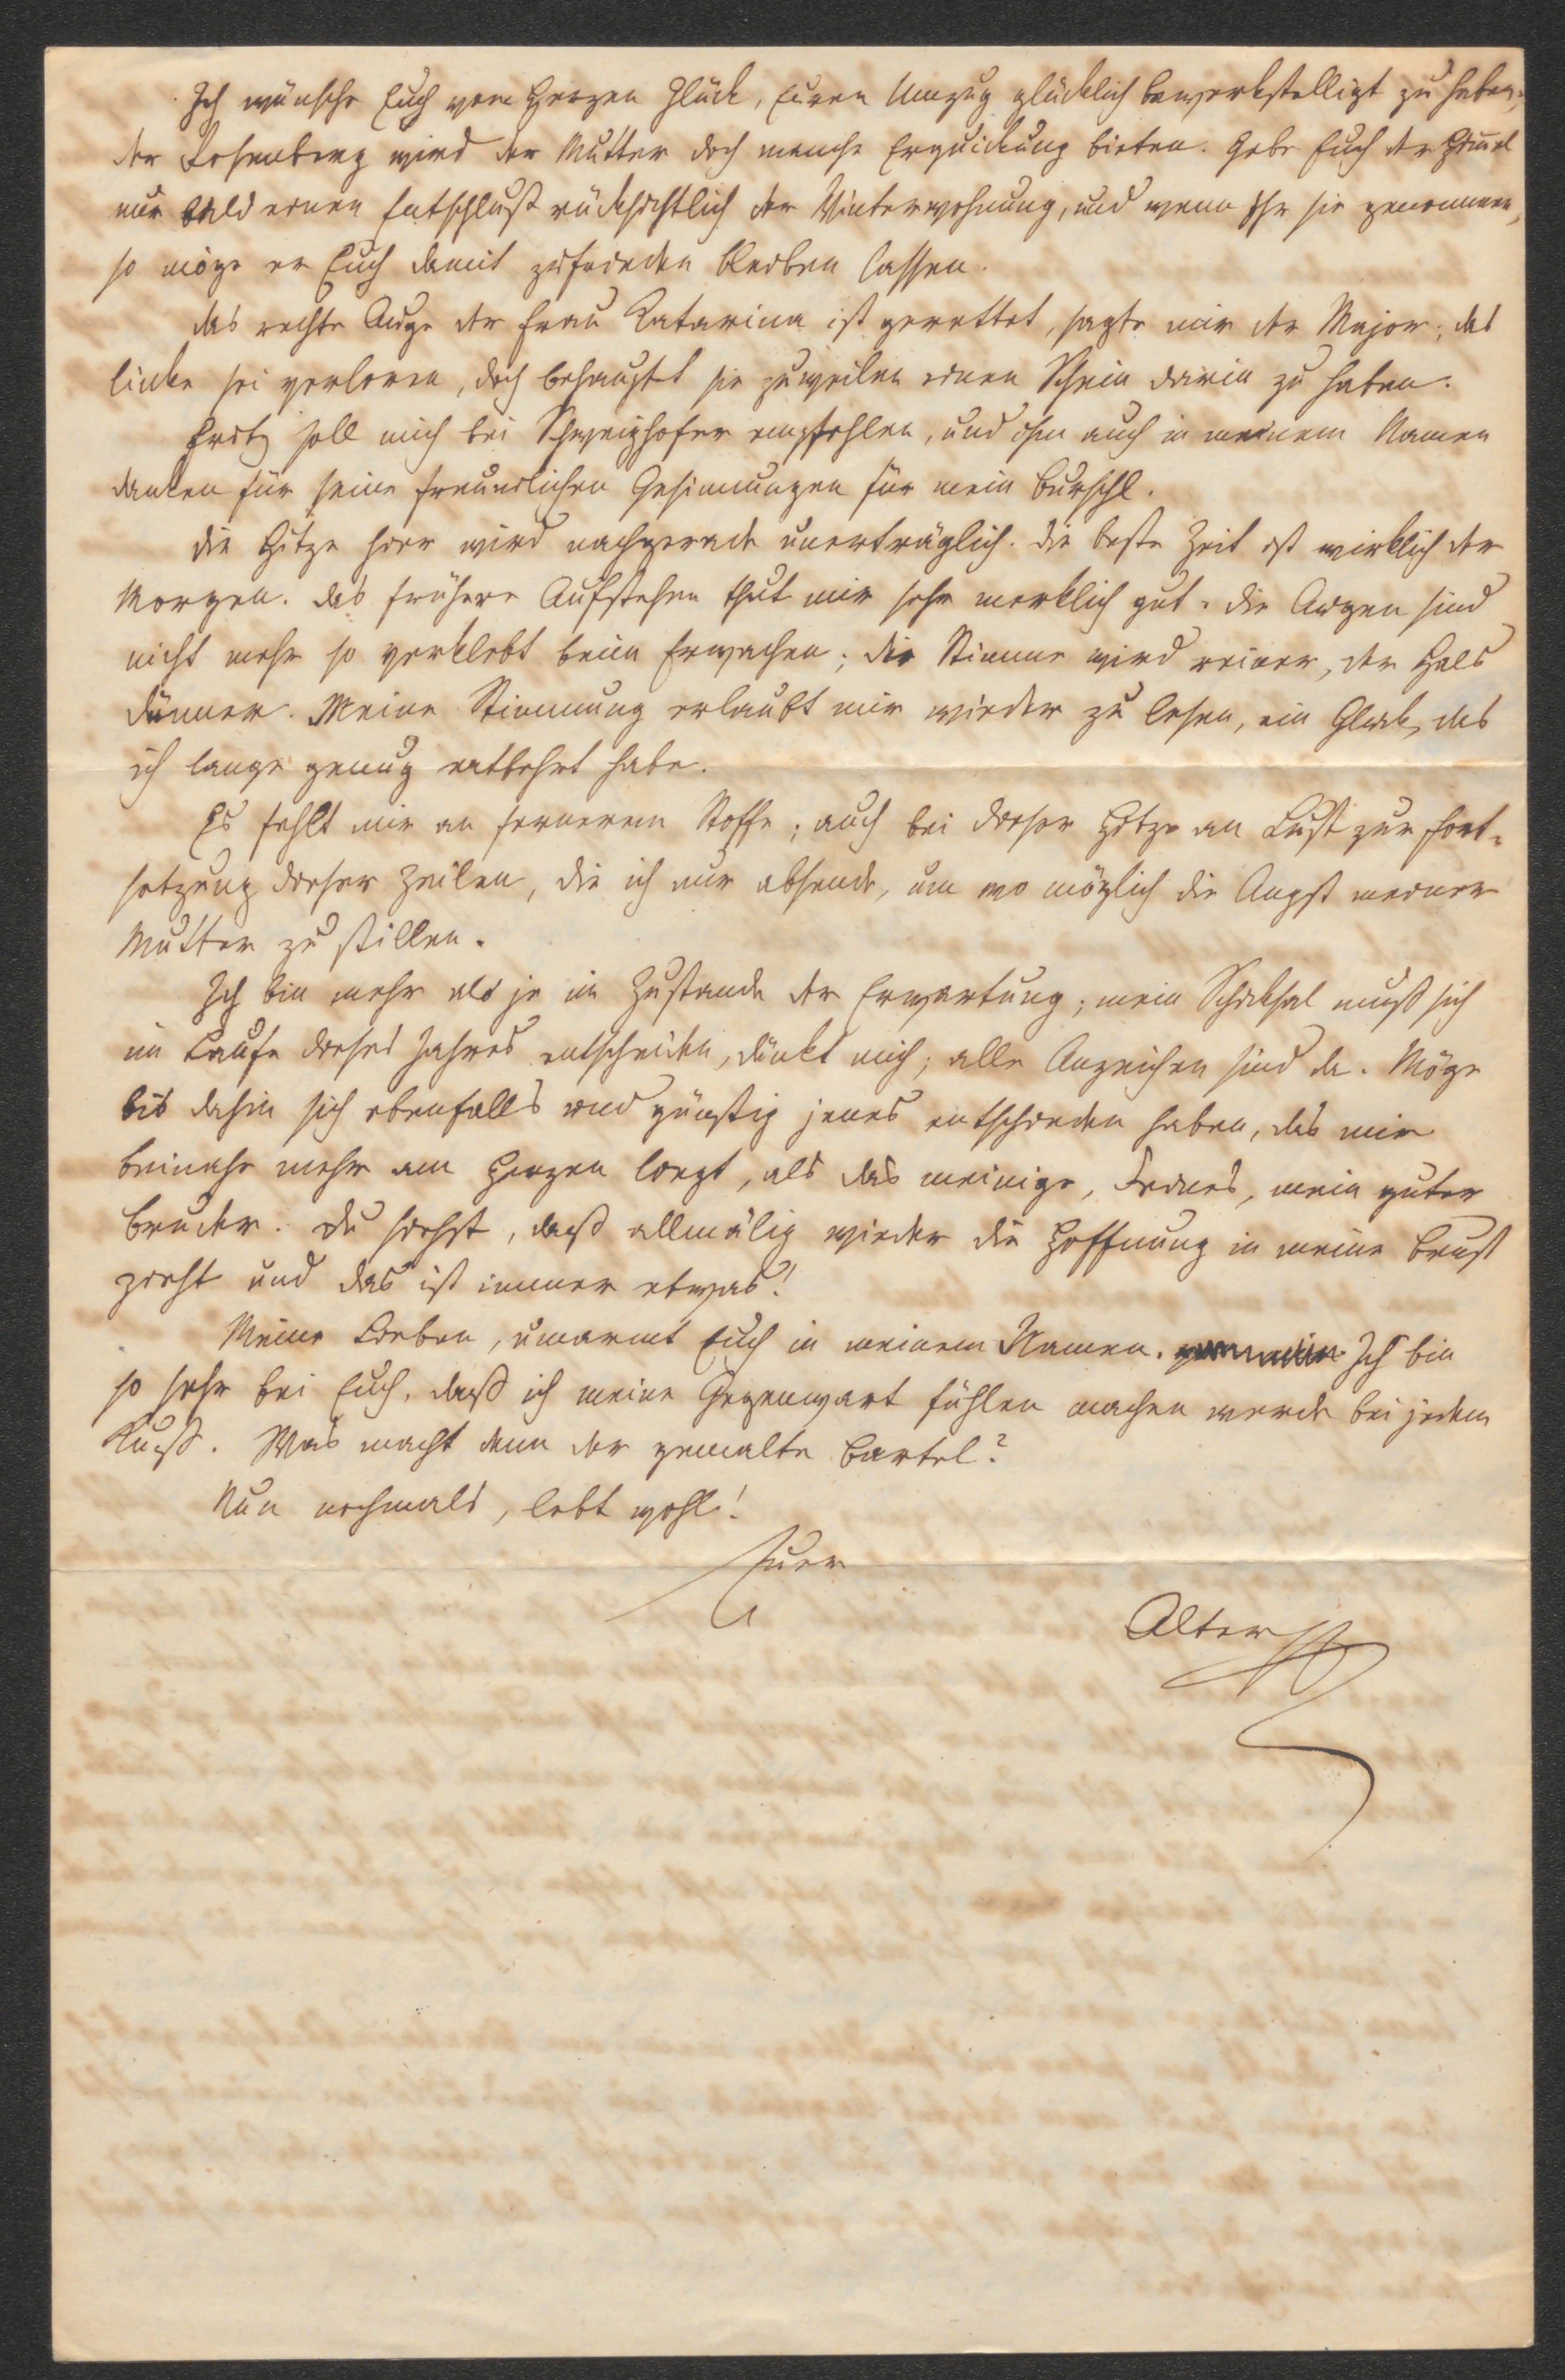 Ich wünsche Euch vom Herzen Glück, Euren Umzug glücklich bewerkstelligt zu haben;
der Rosenberg wird der Mutter doch manche Erquickung bieten. Gebe Euch der Him̅el
nur bald einen Entschluß rücksichtlich der Winterwohnung, und wenn Ihr sie genommen,
so möge er Euch damit zufrieden bleiben lassen.
Das rechte Auge der Frau Katarina ist gerettet, sagte mir der Major; das
linke sei verloren, doch behauptet sie zuweilen einen Schein darin zu haben.
Fritz soll mich bei Schweighofer empfehlen, und ihm auch in meinem Namen
danken für seine freundlichen Gesinnungen für mein Burschl.
Die Hitze hier wird nachgerade unerträglich. Die beste Zeit ist wirklich der
Morgen. Das frühere Aufstehen thut mir sehr merklich gut. Die Augen sind
nicht mehr so verklebt beim Erwachen; die Stimme wird reiner, der Hals
dünner. Meine Stimmung erlaubt mir wieder zu lesen, ein Glück, das
ich lange genug entbehrt habe.
Es fehlt mir an fernerem Stoffe; auch bei dieser Hitze an Lust zur Fort-
setzung dieser Zeilen, die ich nur absende, um wo möglich die Angst meiner
Mutter zu stillen.
Ich bin mehr als je im Zustande der Erwartung; mein Schicksal muß sich
im Laufe dieses Jahres entscheiden, dünkt mich; alle Anzeichen sind da. Möge
bis dahin sich ebenfalls und günstig jenes entschieden haben, das mir
beinahe mehr am Herzen liegt, als das meinige, Deines, mein guter
Bruder. Du siehst, daß allmälig wieder die Hoffnung in meine Brust
zieht und das ist immer etwas!
Meine Lieben, umarmt Euch in meinem Namen. Ich bin
so sehr bei Euch, daß ich meine Gegenwart fühlen machen werde bei jedem
Kuß. Was macht denn der gemalte Bartel?
Nun nochmals, lebt wohl!
Euer
Alter